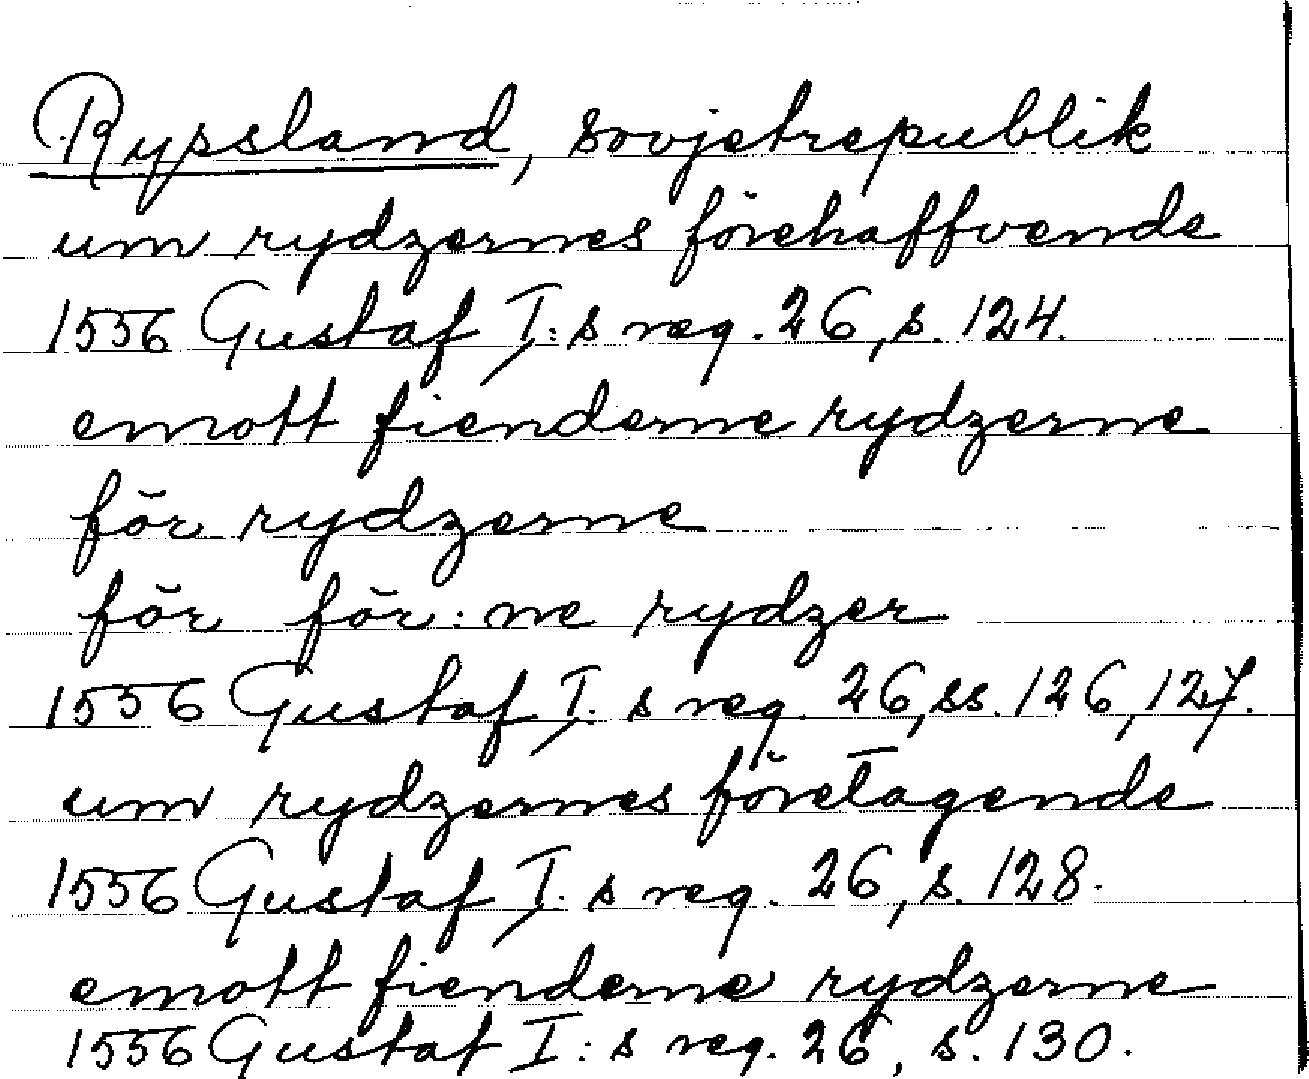 Ryssland, sovjetrepublik
um rydzernes förehaffvende
1556 Gustaf I:s reg. 26, s. 124.
emott fienderne rydzerne
för rydzerne
för för:ne rydzer
1556 Gustaf I. s reg. 26, ss. 126, 127.
um rydzernes företagende
1556 Gustaf I. s reg. 26, s. 128.
emott fienderne rydzerne
1556 Gustaf I:s reg. 26, s. 130.